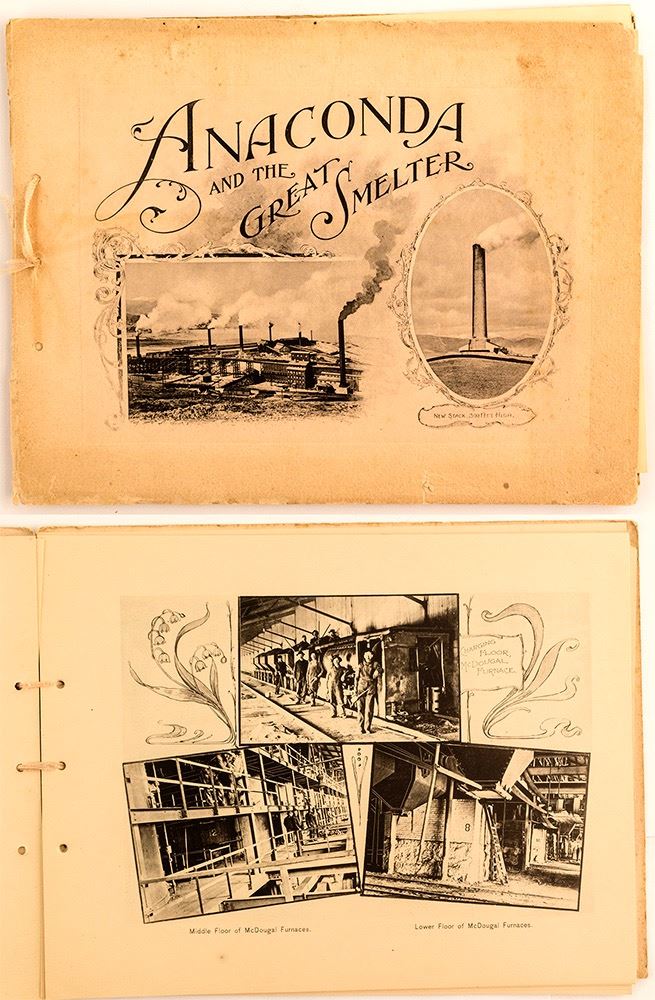 ANACONDA
AND THE
GREAT SMELTER
NEW STACK, 300 FEET HIGH.
CHARGING
FLOOR,
McDOUGAL
FURNACE.
8
Middle Floor of McDougal Furnaces.
Lower Floor of McDougal Furnaces.